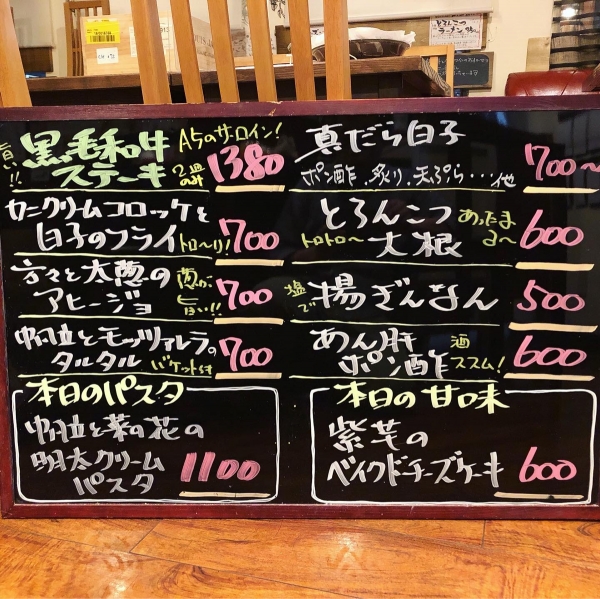 旨い!! 黒毛和牛 A5のサーロイン!
ステーキ 2皿のみ 1380
カニクリームコロッケと
白子のフライ トロ〜リ! 700
太葱の 葱が旨い!!
アヒージョ 700
帆立とモッツァレラの
タルタル バケット付 700
本日のパスタ
帆立と菜の花の
明太クリーム
パスタ 1100
真だら白子
ポン酢、炙り、天ぷら…他 700〜
とろんこつ あったまる〜
トロトロ〜 大根 600
塩で 揚ぎんなん 500
あん肝 酒ススム!
ポン酢 600
本日の甘味
紫芋の
ベイクドチーズケーキ 600
とろんこつ
ラーメン